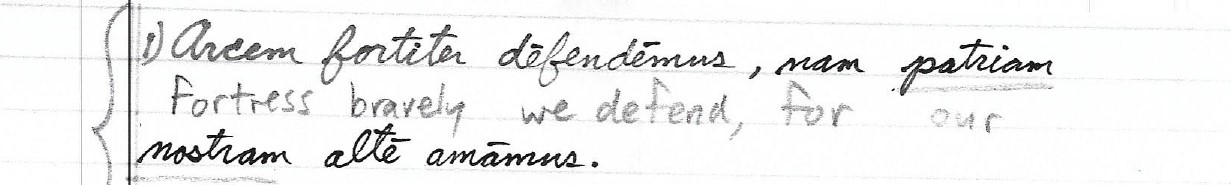 1) Arcem fortiter dēfendēmus, nam patriam
Fortress bravely we defend, for our
nostram altē amāmus.